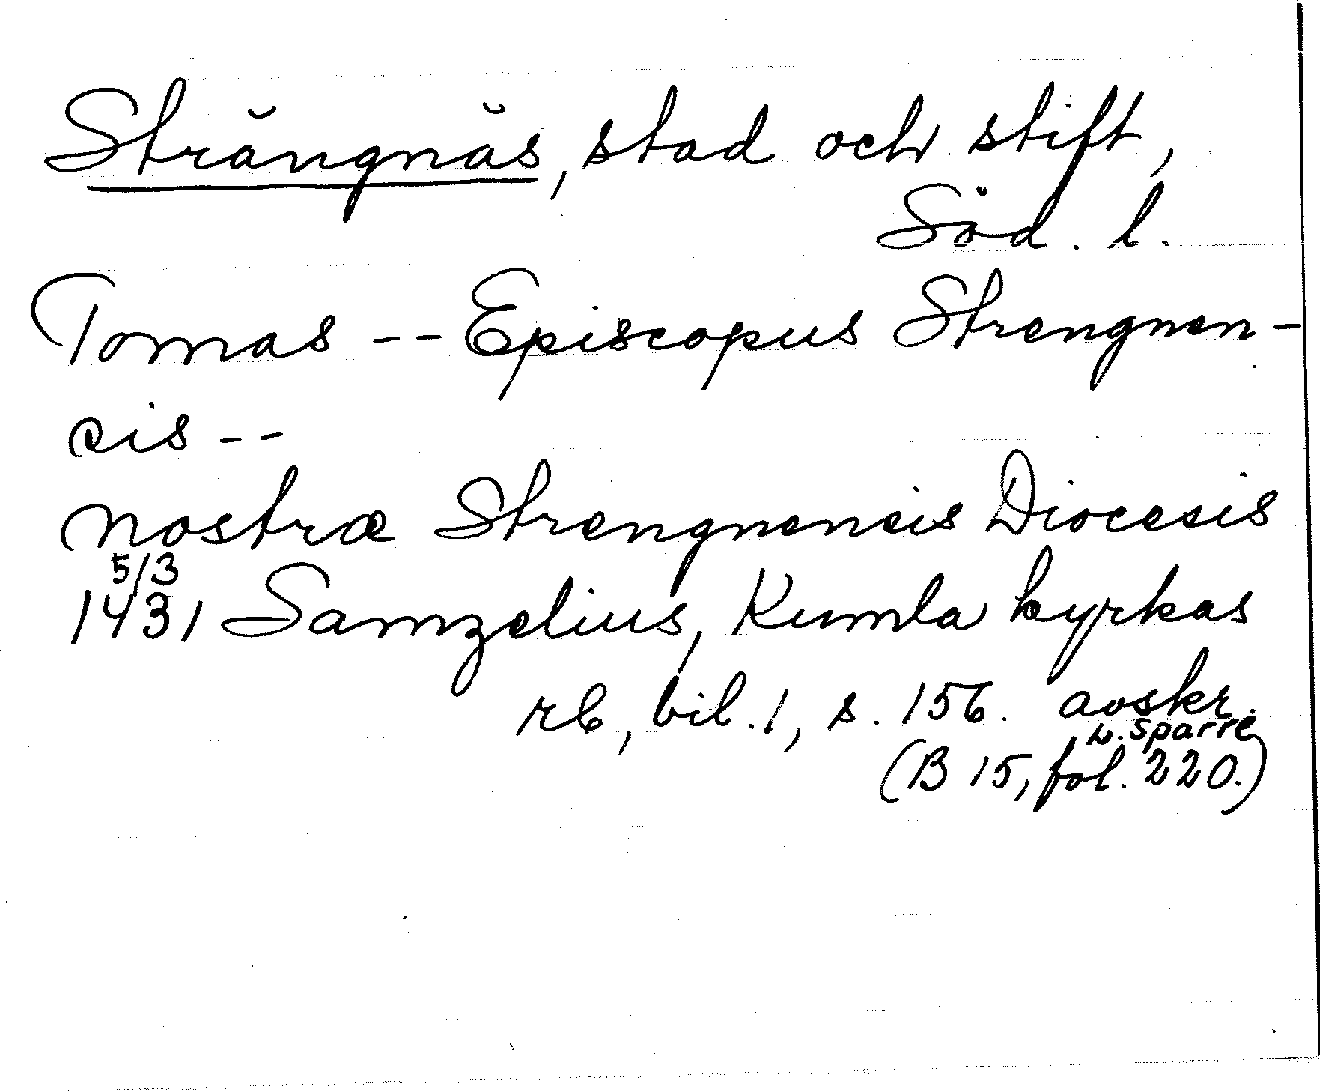 Strängnäs, stad och stift,
Söd. l.
Tomas -- Episcopus Strengnen-
cis --
nostræ Strengnencis Diocesis
5/3
1431 Samzelius, Kumla kyrkas
rb, bil. 1, s. 156. avskr.
L. Sparre
(B 15, fol. 220.)